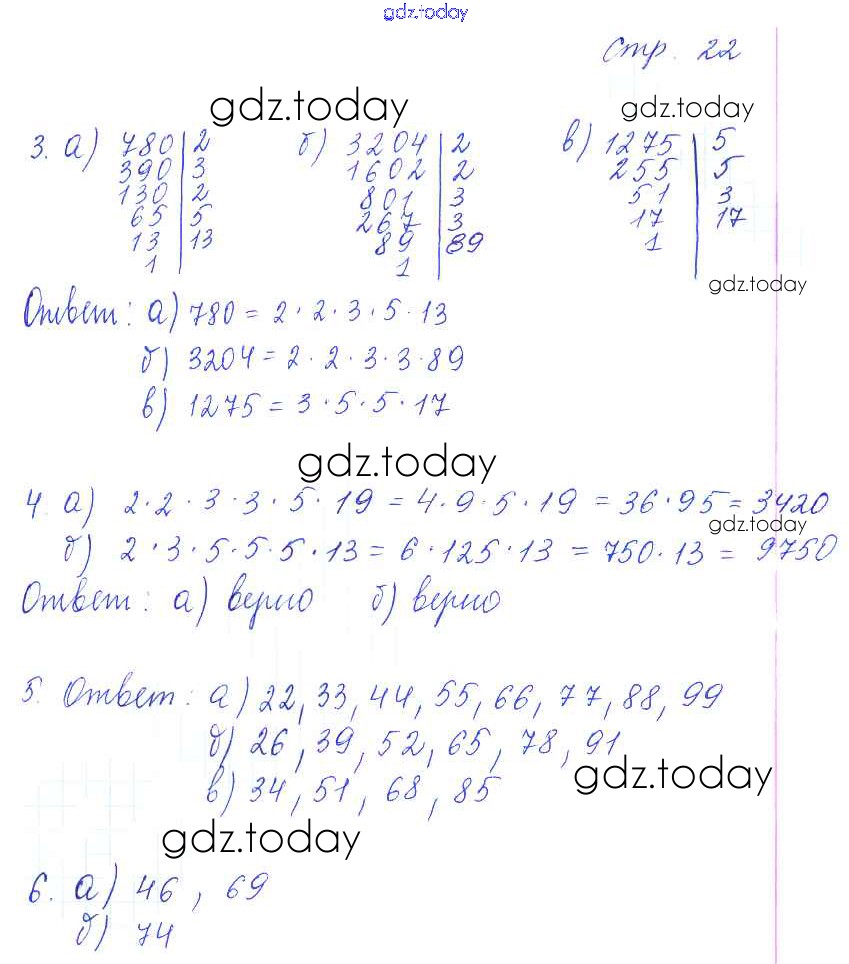 gdz.today
стр. 22
gdz.today gdz.today
3. а) 780 | 2 б) 3204 | 2 в) 1275 | 5
390 | 3 1602 | 2 255 | 5
130 | 2 801 | 3 51 | 3
65 | 5 267 | 3 17 | 17
13 | 13 89 | 89 1
1 1
gdz.today
Ответ: а) 780 = 2 · 2 · 3 · 5 · 13
б) 3204 = 2 · 2 · 3 · 3 · 89
в) 1275 = 3 · 5 · 5 · 17
gdz.today
4. а) 2 · 2 · 3 · 3 · 5 · 19 = 4 · 9 · 5 · 19 = 36 · 95 = 3420
gdz.today
б) 2 · 3 · 5 · 5 · 5 · 13 = 6 · 125 · 13 = 750 · 13 = 9750
Ответ: а) верно б) верно
5. Ответ: а) 22, 33, 44, 55, 66, 77, 88, 99
б) 26, 39, 52, 65, 78, 91
gdz.today
в) 34, 51, 68, 85
gdz.today
6. а) 46, 69
б) 74